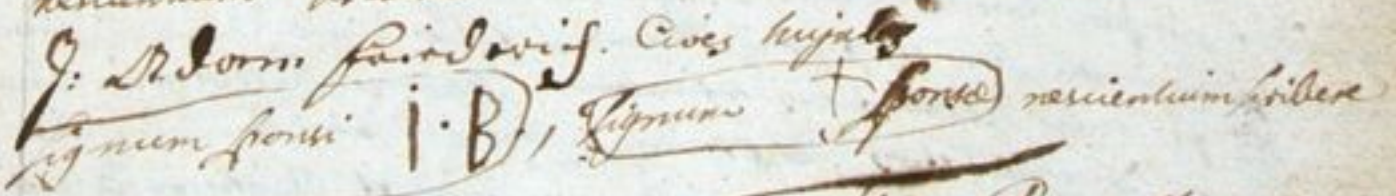 J: Adam Friederich. Cives hujates
signum sponsi I·B, signum + sponsæ nescientium scribere